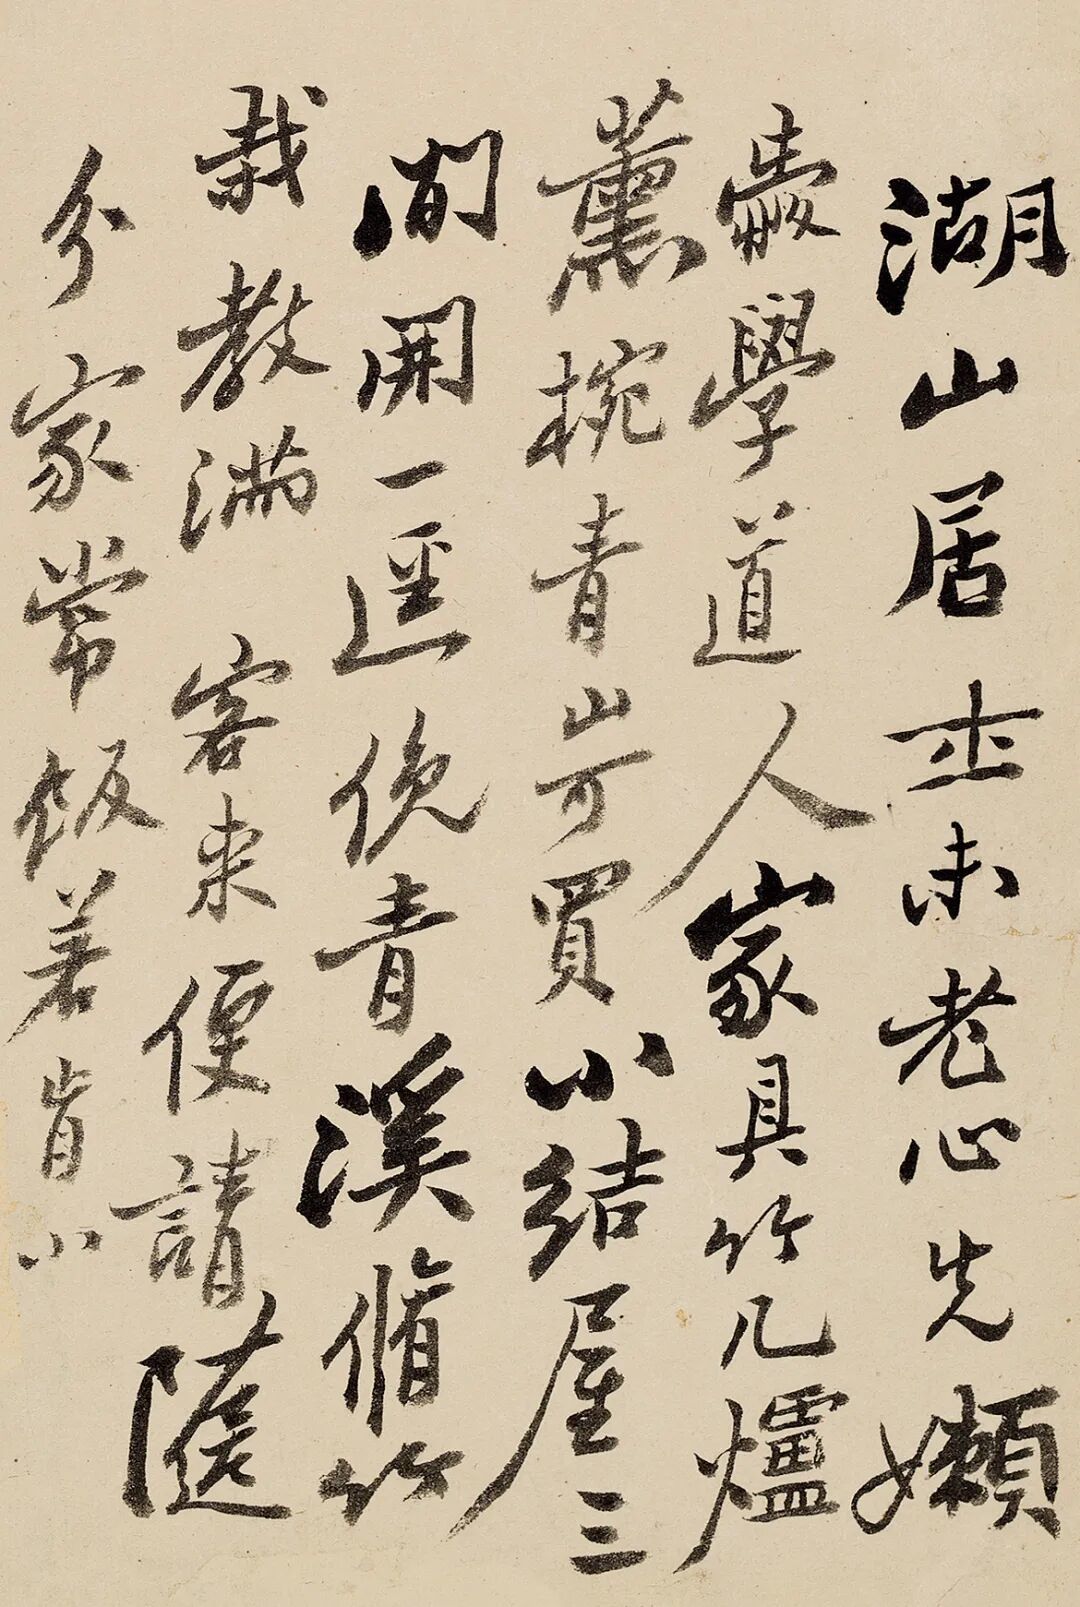 湖山居士未老心先嬾
愛學道人家具竹几爐
薰椀青山可買小結屋三
間開一逕俛青溪脩竹
栽教滿客來便請隨
分家常飯若肯小